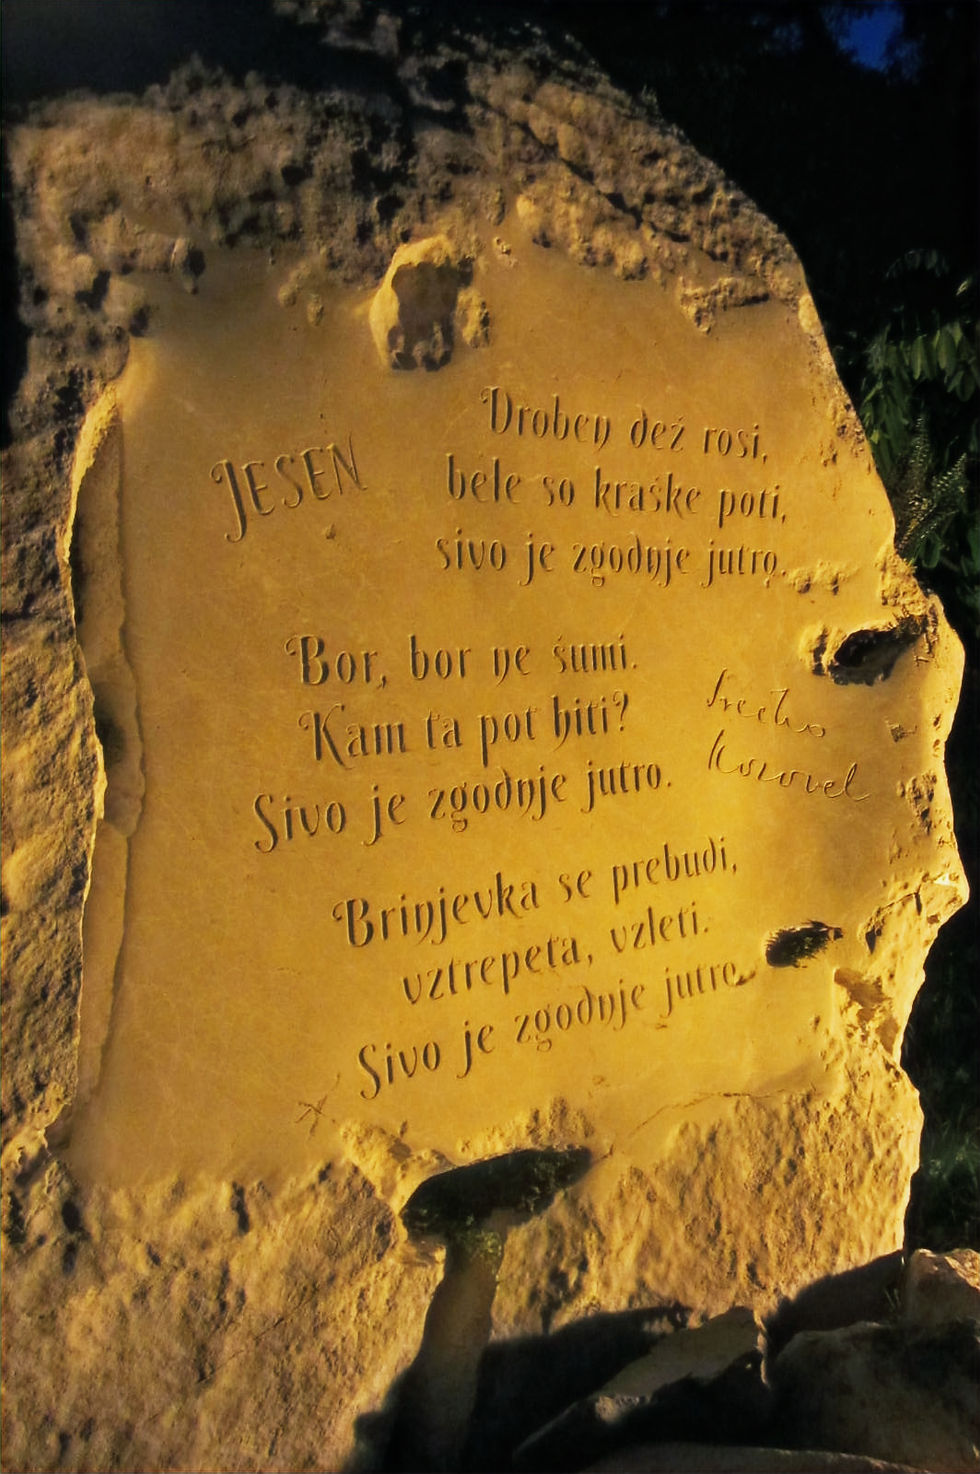 JESEN
Droben dež rosi,
bele so kraške poti,
sivo je zgodnje jutro.
Bor, bor ne šumi.
Kam ta pot hiti?
Sivo je zgodnje jutro.
Brinjevka se prebudi,
vztrepeta, vzleti.
Sivo je zgodnje jutro.
Srečko
Kosovel